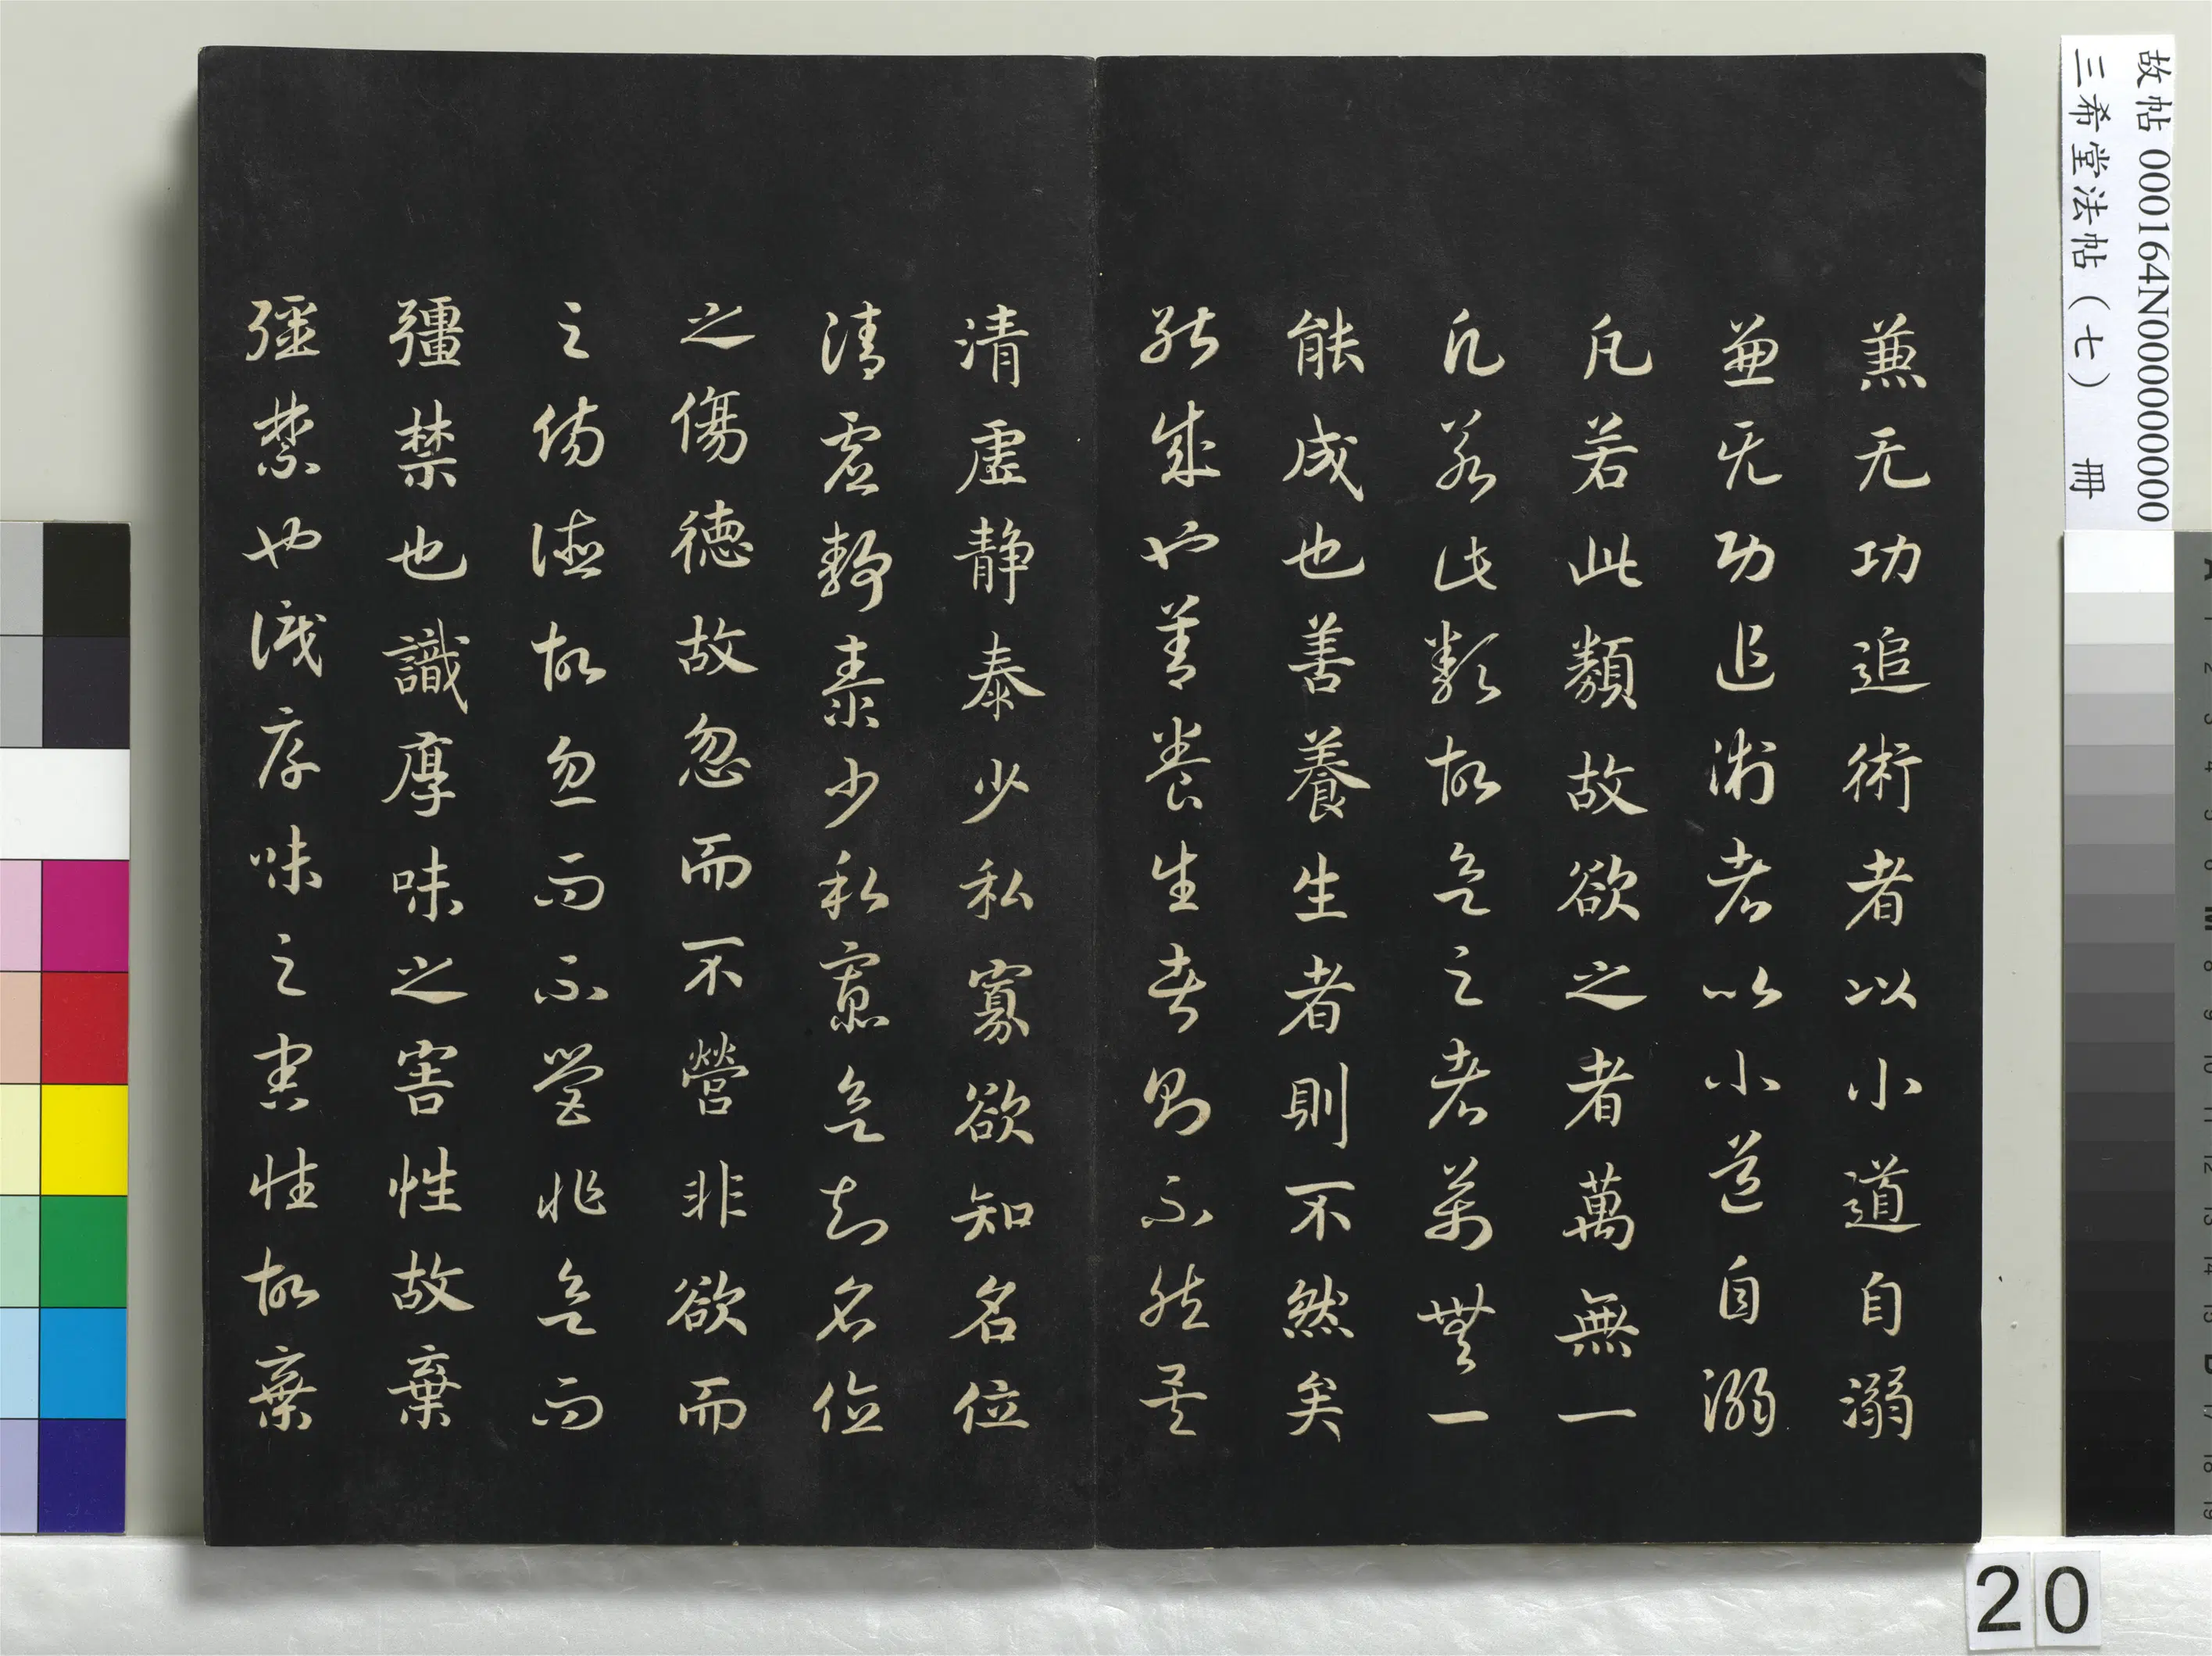 故帖000164N000000000
三希堂法帖（七） 冊
兼无功追術者以小道自溺
兼无功追術者以小道自溺
凡若此類故欲之者萬無一
凡若此類故欲之者萬無一
能成也善養生者則不然矣
能成也善養生者則不然矣
清虛静泰少私寡欲知名位
清虛静泰少私寡欲知名位
之傷德故忽而不營非欲而
之傷德故忽而不營非欲而
彊禁也識厚味之害性故棄
彊禁也識厚味之害性故棄
20